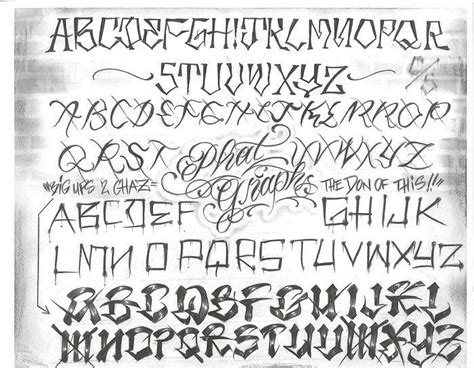 ABCDEFGHIJKLMNOPQR
STUVWXYZ
C/S
ABCDEFGHIJKLMNOP
QRST UVWXYZ
Phat
Graphs
"BIG UPS 2 GHAZ= THE DON OF THIS!!"
ABCDEF GHIJK
LMNOPQRSTUVWXYZ
ABCDEFGHIJKL
MNOPQRSTUVWXYZ